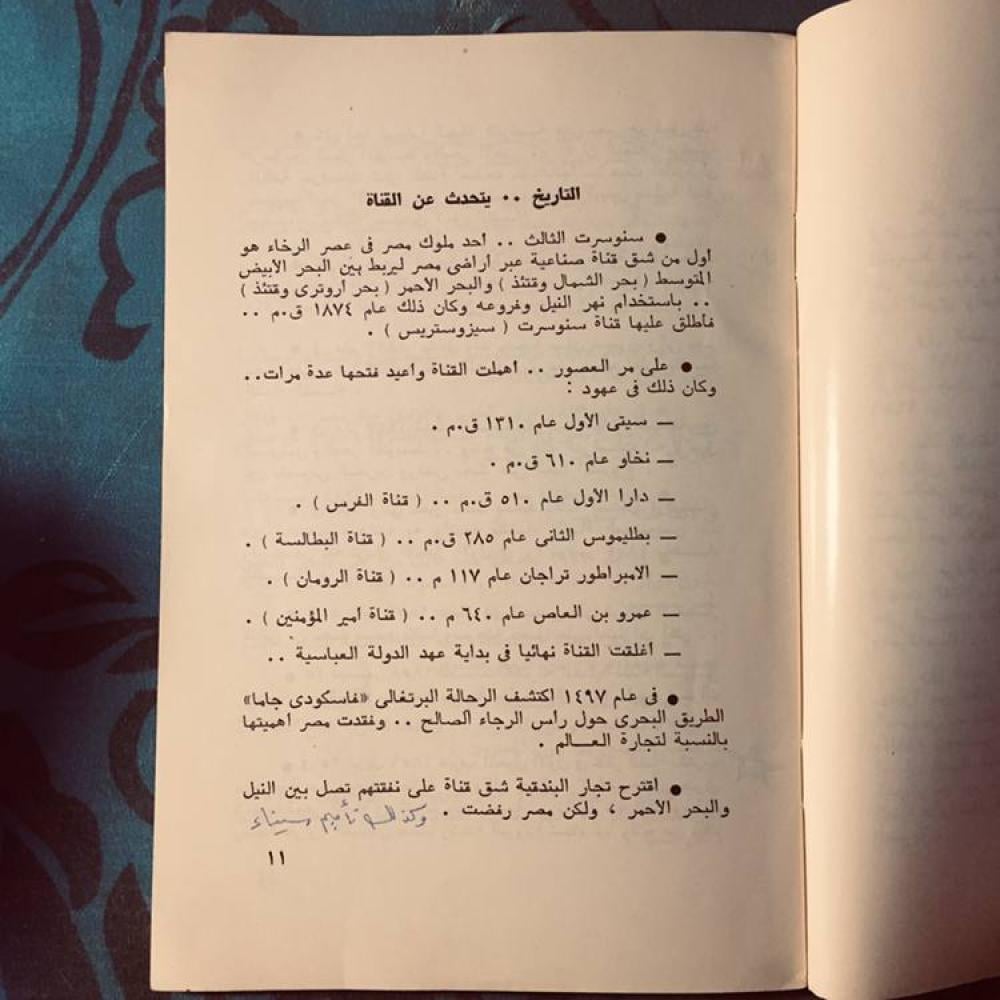 التاريخ .. يتحدث عن القناة
● سنوسرت الثالث .. أحد ملوك مصر فى عصر الرخاء هو
أول من شق قناة صناعية عبر أراضى مصر ليربط بين البحر الأبيض
المتوسط ( بحر الشمال وقتئذ ) والبحر الأحمر ( بحر أروترى وقتئذ )
.. باستخدام نهر النيل وفروعه وكان ذلك عام ١٨٧٤ ق.م ..
فأطلق عليها قناة سنوسرت ( سيزوستريس ) .
● على مر العصور .. أهملت القناة وأعيد فتحها عدة مرات..
وكان ذلك فى عهود :
— سيتى الأول عام ١٣١٠ ق.م .
— نخاو عام ٦١٠ ق.م .
— دارا الأول عام ٥١٠ ق.م .. ( قناة الفرس ) .
— بطليموس الثانى عام ٢٨٥ ق.م .. ( قناة البطالسة ) .
— الامبراطور تراجان عام ١١٧ م .. ( قناة الرومان ) .
— عمرو بن العاص عام ٦٤٠ م .. ( قناة أمير المؤمنين ) .
— أغلقت القناة نهائيا فى بداية عهد الدولة العباسية ..
● فى عام ١٤٩٧ اكتشف الرحالة البرتغالى «فاسكودى جاما»
الطريق البحرى حول رأس الرجاء الصالح .. وفقدت مصر أهميتها
بالنسبة لتجارة العـــالم .
● اقترح تجار البندقية شق قناة على نفقتهم تصل بين النيل
والبحر الأحمر ، ولكن مصر رفضت . وكذلك تأميم سيناء
١١